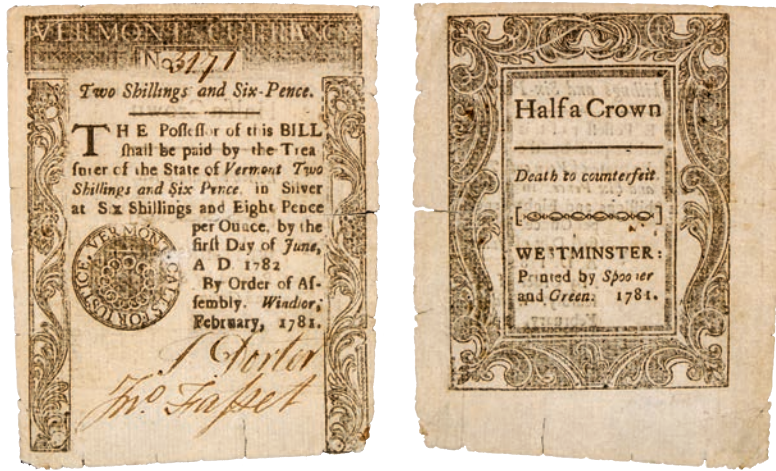 VERMONT CURRENCY
No 3171
Two Shillings and Six-Pence.
THE Poſſeſſor of this BILL
ſhall be paid by the Trea
ſurer of the State of Vermont Two
Shillings and Six Pence, in Silver
at Six Shillings and Eight Pence
per Ounce, by the
firſt Day of June,
A D. 1782
By Order of Aſ-
ſembly. Windſor;
February, 1781.
VERMONT CALLS FOR JUSTICE.
T Porter
Jno Faſset
Half a Crown
Death to counterfeit.
WESTMINSTER:
Printed by Spooner
and Green. 1781.